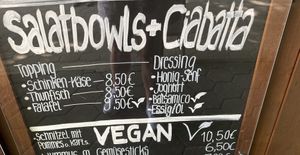 Salatbowls + Ciabatta
Topping
• Schinken-Käse - 8,50€
• Thunfisch - 8,50€
• Falafel 9,50€
Dressing
• Honig-Senf
• Joghurt
• Balsamico
• Essig/Öl
VEGAN
- Schnitzel mit 10,50€
Pommes o. Kart. 6,50€
Hummus m. Gemüsesticks